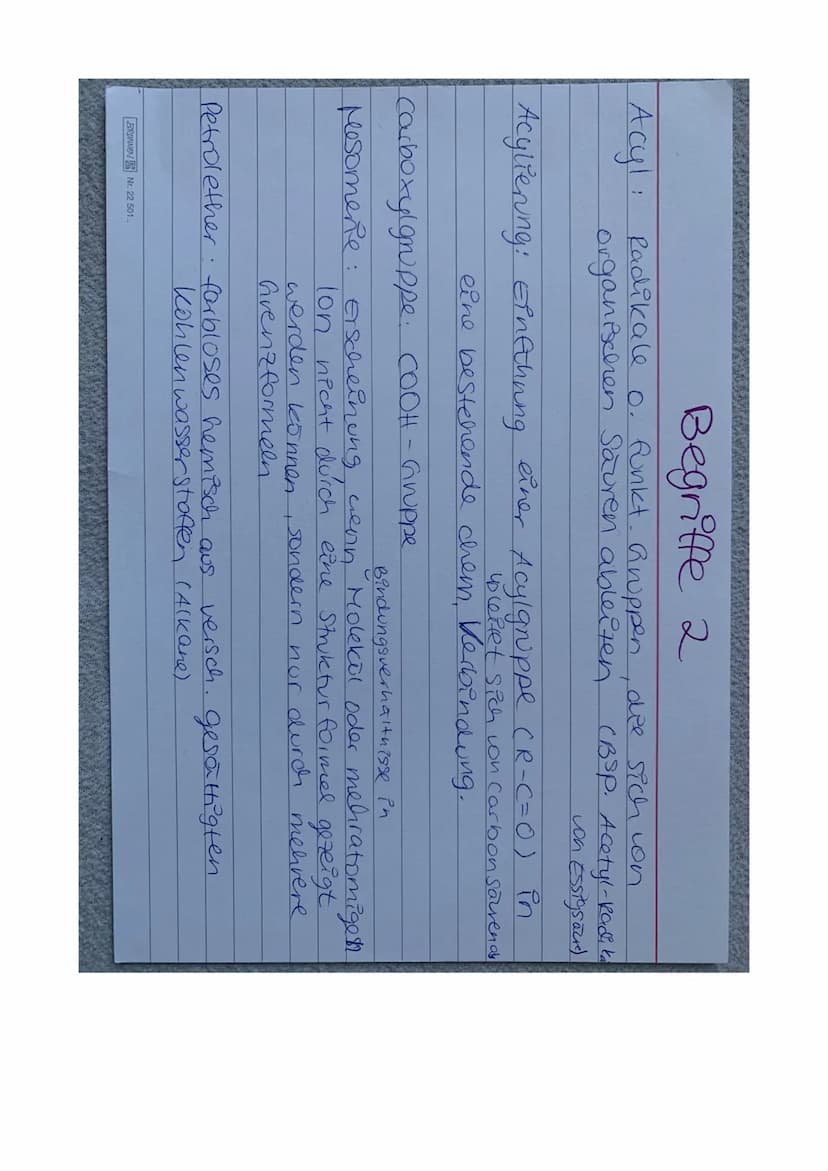 Begriffe 2
Acyl: Radikale o. funkt. Gruppen, die sich von
organischen Säuren ableiten (Bsp. Acetyl-Radika
von Essigsäure)
Acylierung: Einführung einer Acylgruppe (R-C=O) in
↳ leitet sich von Carbonsäuren ab
eine bestehende chem. Verbindung.
Carboxylgruppe: COOH-Gruppe
Bindungsverhältnisse in
Mesomerie: Erscheinung wenn Molekül oder mehratomigen
Ion nicht durch eine Strukturformel gezeigt
werden können, sondern nur durch mehrere
Grenzformeln
Petrolether: farbloses Gemisch aus versch. gesättigten
Kohlenwasserstoffen (Alkane)
BRUNNEN Nr. 22 501